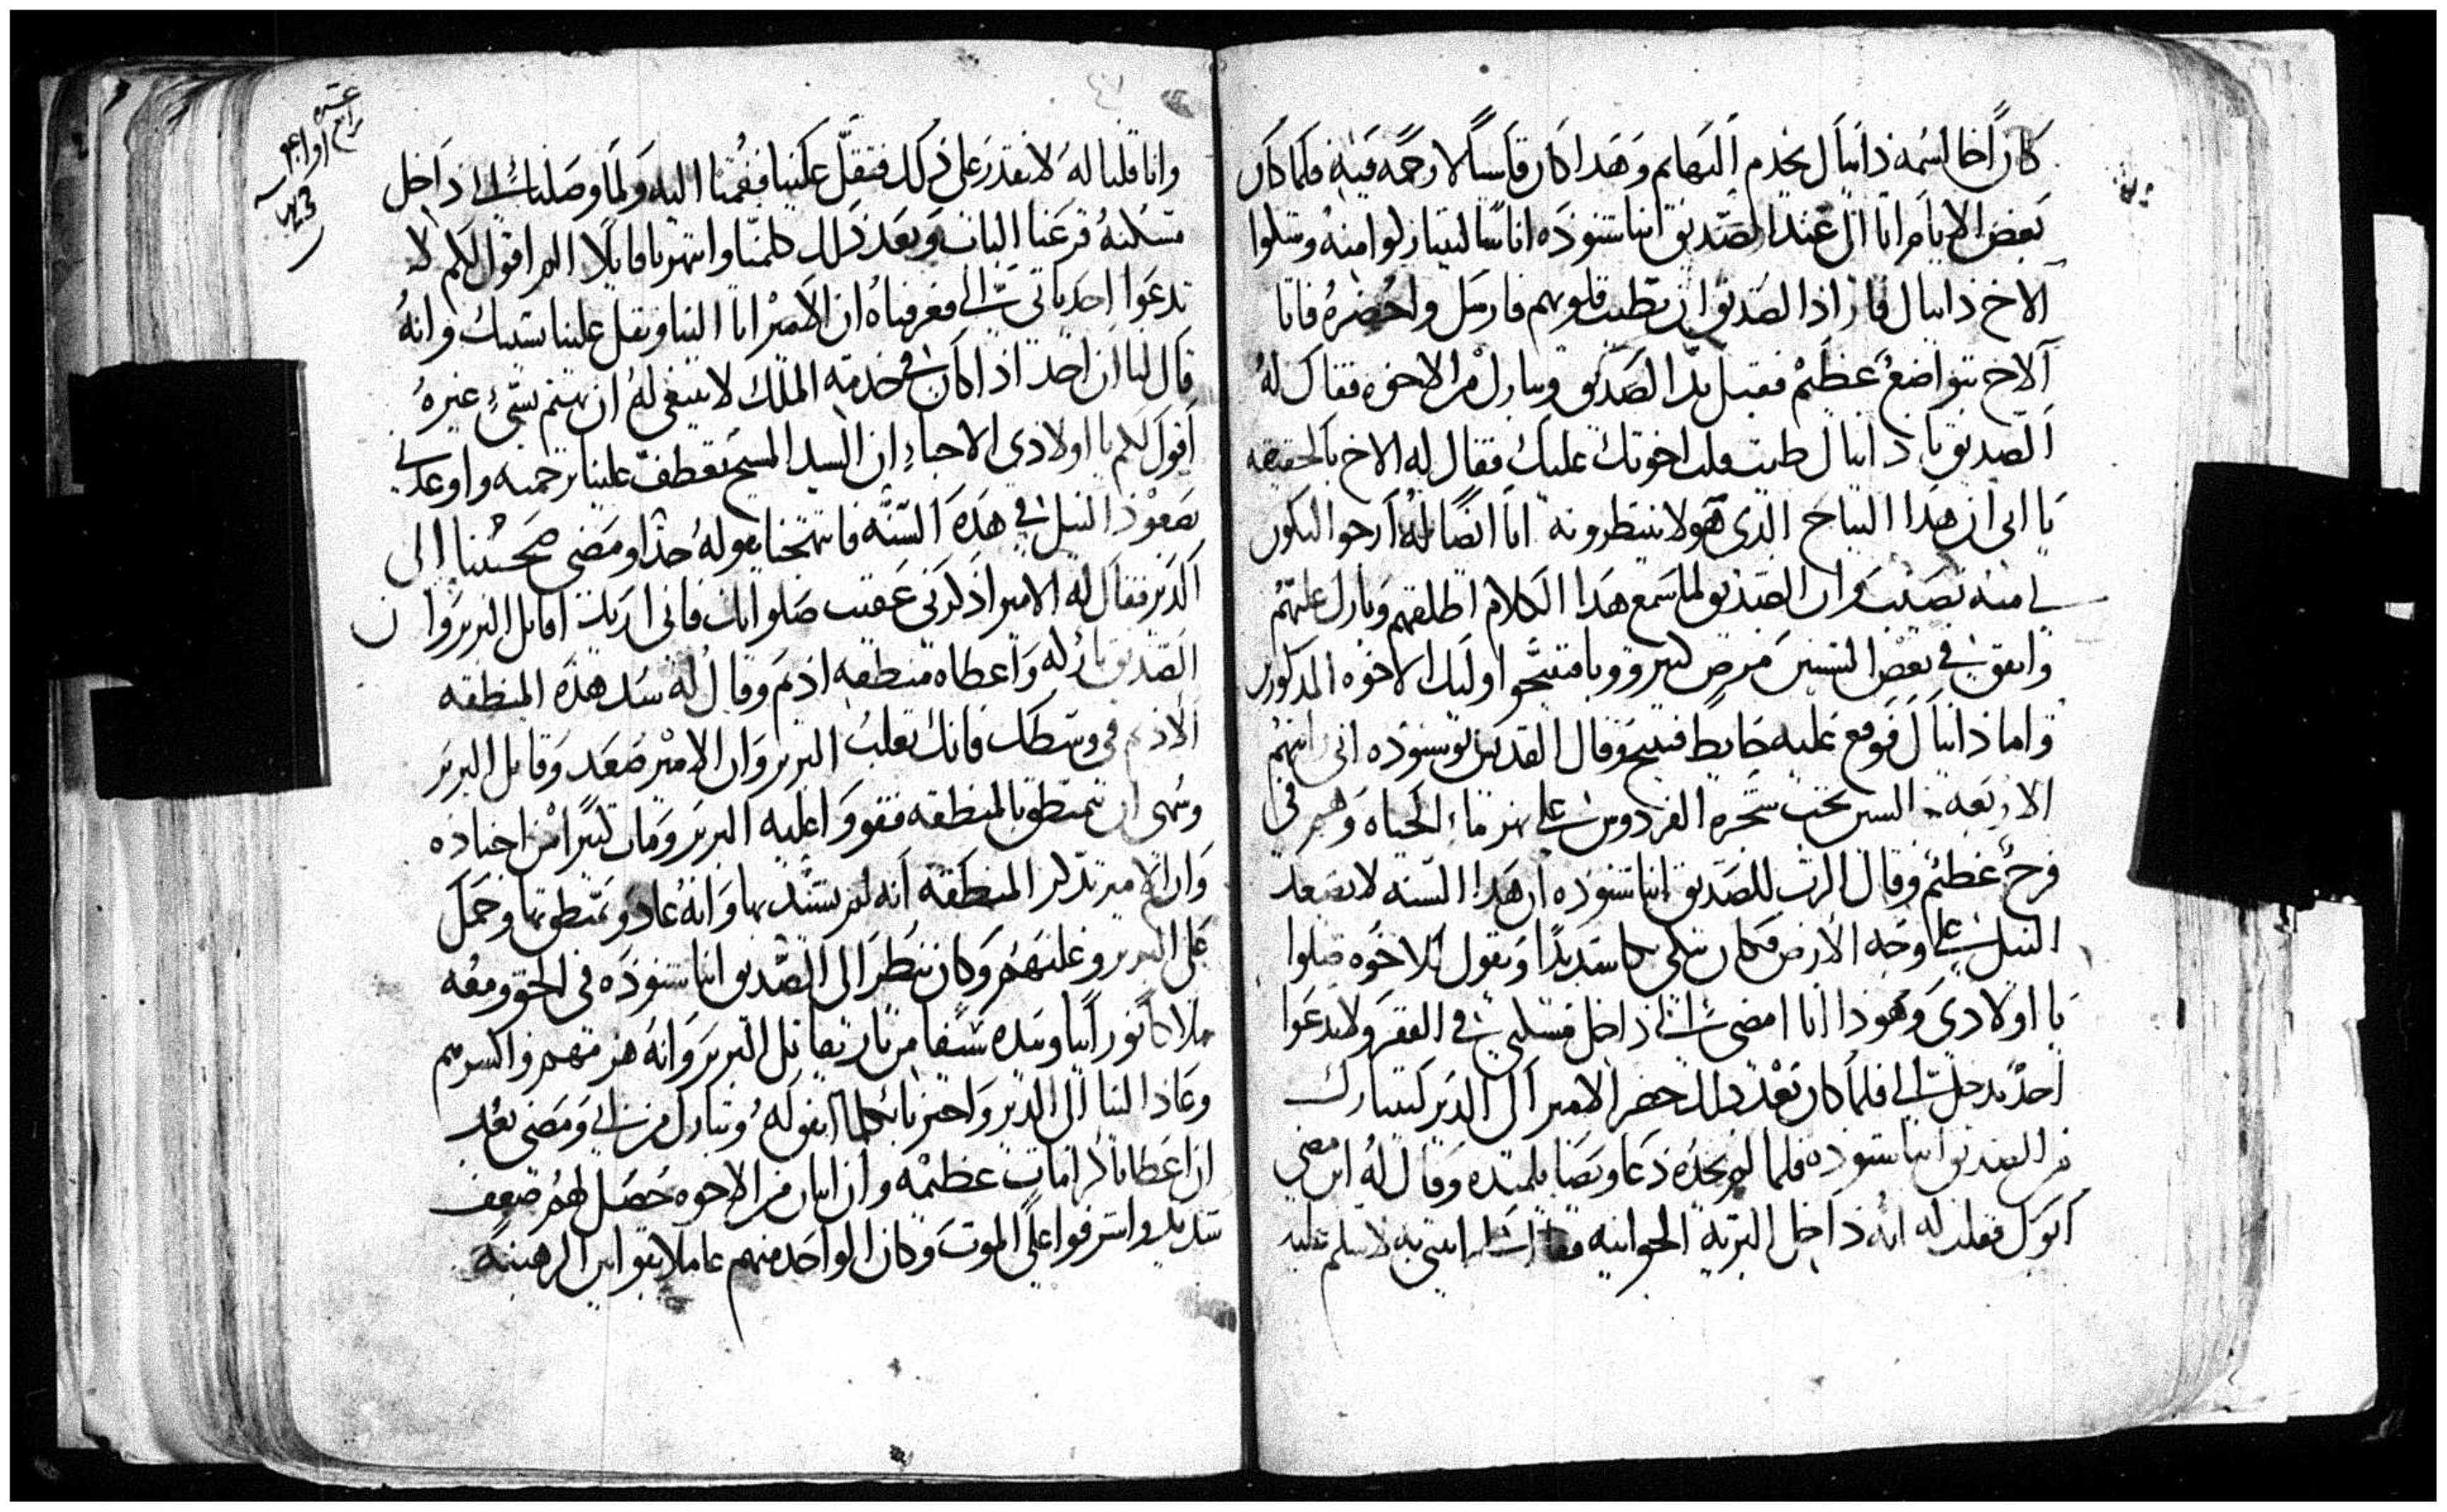 كان اخا اسمه دانيال يخدم البهايم وهدا كان قاسيا لا رحمه فيه فلما كان
بعض الايام اتا الى عند الصديق انبا شنوده اناسا ليتباركوا منه وسلوا
الاخ دانيال فاراد الصديق ان يطيب قلوبهم فارسل واحضره فاتا
الاخ بتواضع عظيم فقبل يد الصديق وتبارك من الاخوه فقال له
الصديق يا دانيال طيب قلب اخوتك عليك فقال له الاخ بالحقيقه
يا ابى ان هدا النياح الدى هولا ينتظرونه انا ايضا له ارجوا ليكون
لي منه نصيب وان الصديق لما سمع هدا الكلام اطلقهم وبارك عليهم
واتفق في بعض السنين مرض كبير ووبا فتنيحوا اوليك الاخوه المدكورين
واما دانيال فوقع عليه حايط فتنيح وقال القديس بو شنوده انى رايتهم
الاربعه السين تحت شجره الفردوس على نهر ماء الحياه وهم فى
فرح عظيم وقال الرب للصديق انبا شنوده ان هدا السنه لا يصعد
النيل على وجه الارض فكان يبكى بكا شديدا ويقول للاخوه صلوا
يا اولادى وهودا انا امضى الى داخل مسكنى في القفر ولا تدعوا
احد يدخل الي فلما كان بعد دلك حضر الامير الى الدير ليتبارك
من الصديق انبا شنوده فلما لم يجده دعا ويصا تلميده وقال له اين مضى
ابوك فقلت له انه داخل البريه الجوانيه فقال ايتنى به لاسلم عليه
عشره
رابع اواجه
وانا قلنا له لا نقدر على دلك فتقل علينا فقمنا اليه ولما وصلنا الى داخل
مسكنه قرعنا الباب وبعد دلك كلمنا وانتهرنا قايلا الم اقول لكم لا
تدعوا احد ياتى الي فعرفناه ان الامير اتا الينا وتقل علينا بسببك وانه
قال لنا ان احد ادا كان في خدمه الملك لا ينبغى له ان يهتم بشيء غيره
اقول لكم يا اولادى الاحباء ان السيد المسيح تعطف علينا برحمته واوعدني
بصعود النيل في هده السنه فابتهجنا بقوله جدا ومضى صحبتنا الى
الدير فقال له الامير ادكرنى عقيب صلواتك فانى اريد اقاتل البربر وان
الصديق بارك له واعطاه منطقه ادم وقال له شد هده المنطقه
الادم فى وسطك فانك تغلب البربر وان الامير صعد وقاتل البربر
وسهى ان يتمنطق بالمنطقه فقووا عليه البربر ومات كثيرا من اجناده
وان الامير تدكر المنطقه انه لم يشتد بها وانه عاد وتمنطق بها وحمل
على البربر وغلبهم وكان ينظر الى الصديق انبا شنوده فى الجو ومعه
ملاكا نورانيا وبيده سيفا من نار يقاتل البربر وانه هزمهم واكسرهم
وعاد الينا الى الدير واخبرنا بكلما اتفق له وتبارك من ابي ومضى بعد
ان اعطانا كرامات عظيمه وان اتنان من الاخوه حصل لهم ضعف
شديد واشرفوا على الموت وكان الواحد منهم عاملا بقوانين الرهبنه